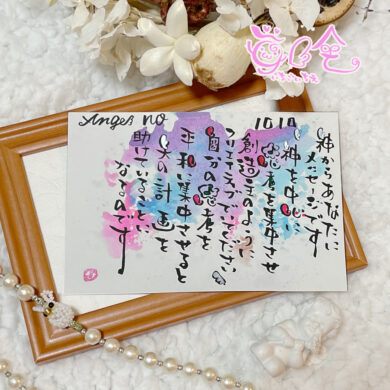 Angel no 1010
神からあなたに
メッセージです
神を中心に
思考を集中させ
創造主のように
ください
自分の思考を
平和に集中させると
天の計画を
助けていることに
なるのです